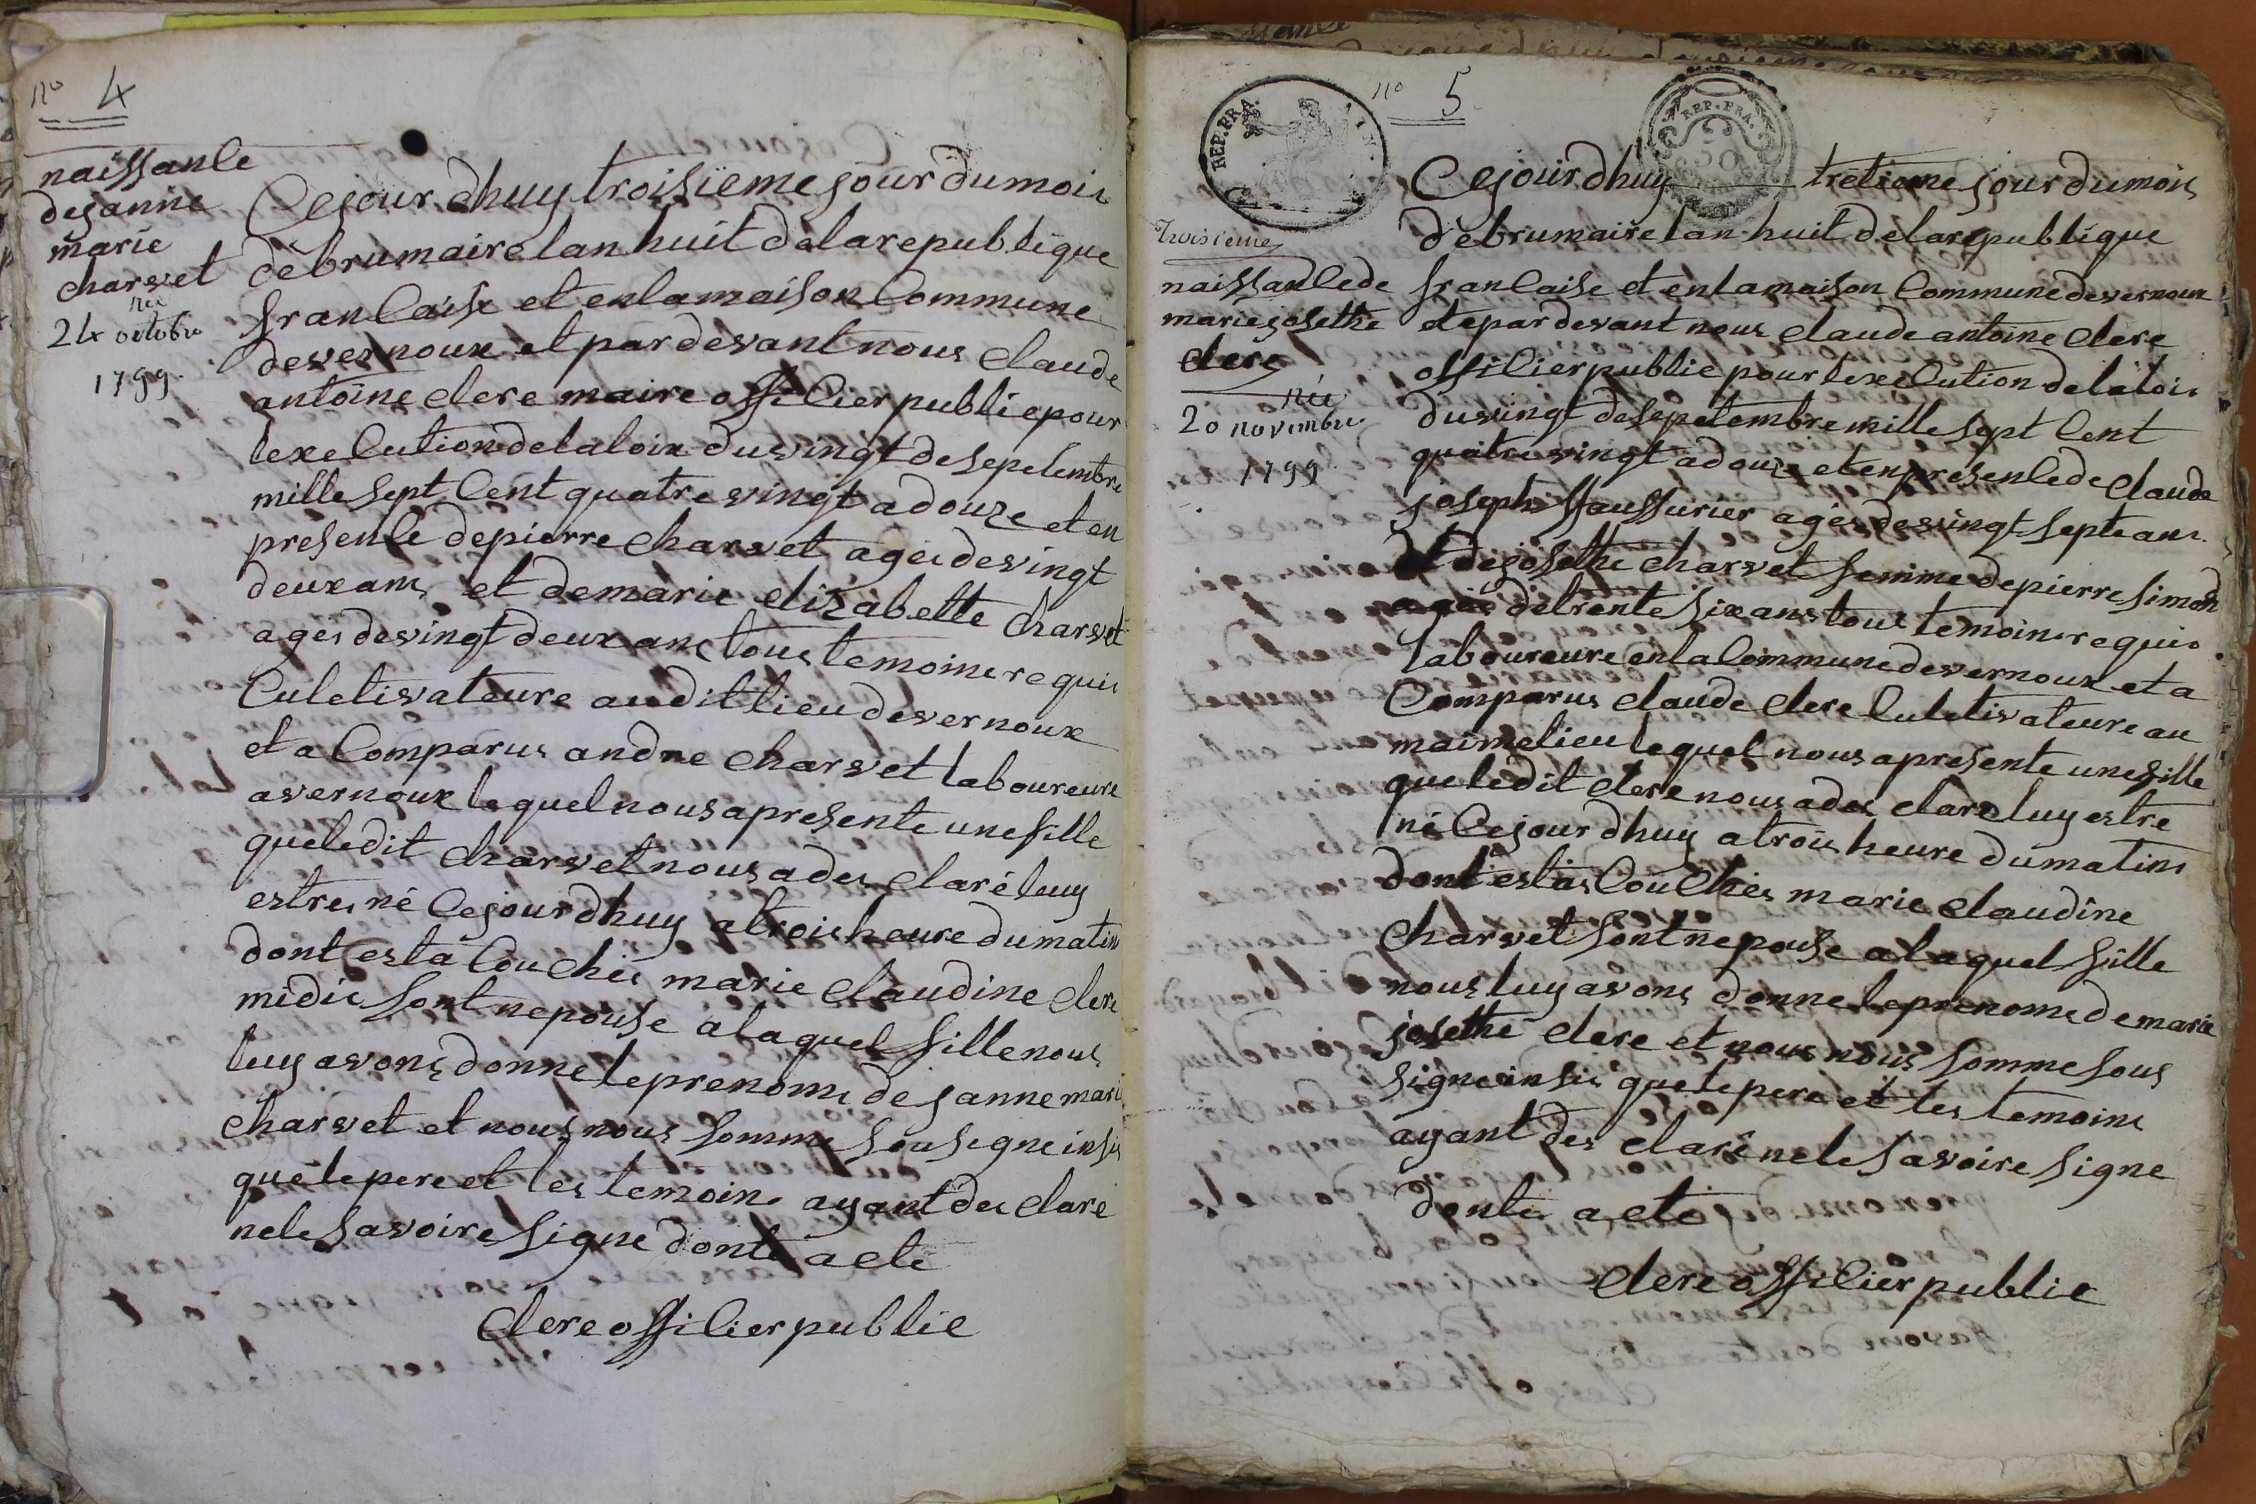 no 4
naissance
dejanne
marie
charvet
née
24 octobre
1799.
Cejour dhuy troisieme jour du mois
debrumaire lan huit delarepublique
francaise et enlamaison Commune
devernoux et pardevant nous claude
antoine clere maire officier publicpour
lexecution delaloix duvingt desepetembre
mille sept Cent quatre vingt adouze et en
presence depierre charvet ageé devingt
deux ans et demarie elizabette charvet
ageé devingt deux ans tous temoins requis
Culetivateure auditlieu devernoux
et a Comparus andre charvet laboureure
avernoux lequelnousapresente unefille
queledit charvet nous a des claré luy
estre né Cejour dhuy atroisheure dumatin
dont esta Couchée marie claudine clere
midie sont nepouse alaquel fille nous
luy avons donne leprenoms dejanne marie
charvet et nous nous somme sousigne insis
quelepere et les temoins ayant des claré
nele savoire signe donte acte
clere officier public
REP. FRA.
no 5
REP. FRA.
50
troisieme
naissancede
mariejosethe
clere
née
20 novembre
1799.
Cejourdhuy tretieme jour dumois
debrumaire lan huit delarepublique
francaise et enlamaison Commune devernoux
etepardevant nous claude antoine clere
officier public pour lexecution delalois
duvingt desepetembre mille sept Cent
quatre vingt adouze etenpresencede claude
joseph ageé devingt septe ans
et dejosethe charvet femme depierre simon
ageé detrente sixans tous temoins requis
laboureure enlaCommune devernoux et a
Comparus claude clere Culetivateure au
maimelieu lequel nous apresente unefille
queledit clere nous ades clare luy estre
né Cejour dhuy atrois heure dumatins
dont estas Couchés marie claudine
charvet sont nepouse alaquel fille
nous luy avons donne leprenoms demarie
josethe clere et nous nous somme sous
signe insis quelepere et les temoins
ayant des claré nele savoire signe
donte acte
clere officier public